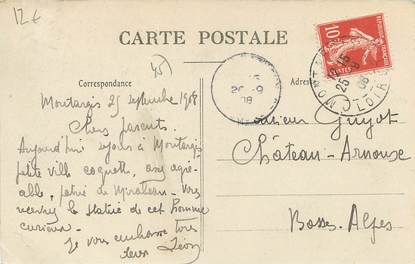 12€
CARTE POSTALE
45
Correspondance
Adresse
Montargis 25 septembre 1908
Chers parents
Aujourd'hui séjour à Montargis
petite ville coquette, assez agré-
able, patrie de Mirabeau - Vous
verrez la statue de cet homme
curieux.
Je vous embrasse tous
Léon
Monsieur Guyot
Château-Arnoux
Basses-Alpes
10
POSTES
REPUBLIQUE FRANÇAISE
MONTARGIS
25-9
08
LOIRET
26-9
08